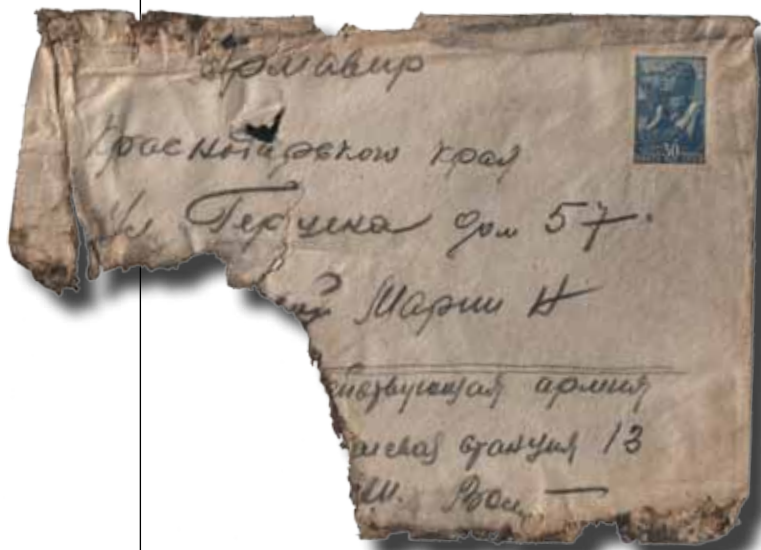 Армавир
Краснодарского края
Ул Герцена дом 57.
Марии Н
30
действующая армия
станция 13